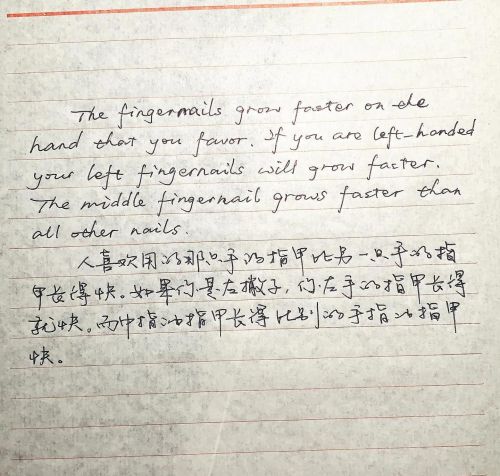 The fingernails grow faster on the
hand that you favor. If you are left-handed
your left fingernails will grow faster.
The middle fingernail grows faster than
all other nails.
人喜欢用的那只手的指甲比另一只手的指
甲长得快。如果你是左撇子，你左手的指甲长得
就快。而中指的指甲长得比别的手指的指甲
快。